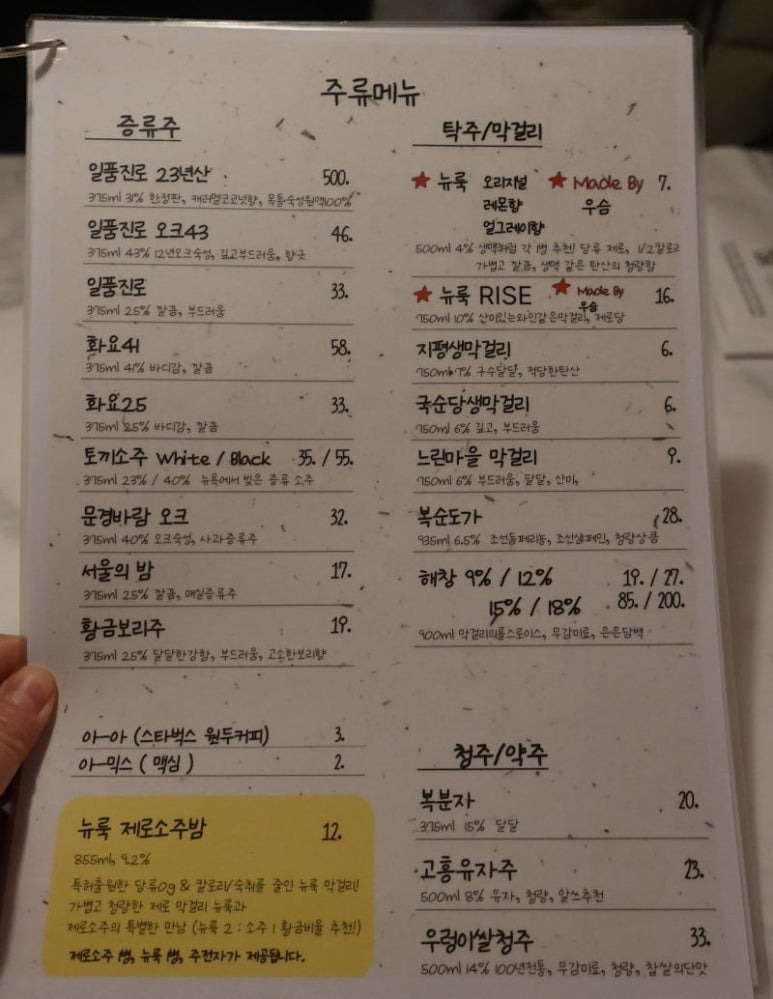 주류메뉴
증류주
일품진로 23년산 500.
375ml 31% 한정판, 캐러멜코코넛향, 목통숙성원액100%
일품진로 오크43 46.
375ml 43% 12년오크숙성, 깊고부드러움, 향긋
일품진로 33.
375ml 25% 깔끔, 부드러움
화요41 58.
375ml 41% 바디감, 깔끔
화요25 33.
375ml 25% 바디감, 깔끔
토끼소주 White / Black 35. / 55.
375ml 23% / 40% 뉴룩에서 빚은 증류 소주
문경바람 오크 32.
375ml 40% 오크숙성, 사과증류주
서울의 밤 17.
375ml 25% 깔끔, 매실증류주
황금보리주 19.
375ml 25% 달달한강함, 부드러움, 고소한보리향
아-아 (스타벅스 원두커피) 3.
아-믹스 ( 맥심 ) 2.
뉴룩 제로소주밤 12.
855ml, 9.2%
특허출원한 당류0g & 칼로리/숙취를 줄인 뉴룩 막걸리!
가볍고 청량한 제로 막걸리 뉴룩과
제로소주의 특별한 만남 (뉴룩 2 : 소주 1 황금비율 추천!)
제로소주 1병, 뉴룩 1병, 주전자가 제공됩니다.
탁주/막걸리
★ 뉴룩 오리지널 ★ Made By 7.
레몬향 우슴
얼그레이향
500ml 4% 생맥처럼 각 1병 추천! 당류 제로, 1/2칼로리
가볍고 깔끔, 생맥 같은 탄산의 청량함
★ 뉴룩 RISE ★ Made By 16.
우슴
750ml 10% 산미있는와인같은막걸리, 제로당
지평생막걸리 6.
750ml 7% 구수달달, 적당한탄산
국순당생막걸리 6.
750ml 6% 깊고, 부드러움
느린마을 막걸리 9.
750ml 6% 부드러움, 달달, 산미,
복순도가 28.
935ml 6.5% 조선돔페리뇽, 조선샴페인, 청량상큼
해창 9% / 12% 19. / 27.
15% / 18% 85. / 200.
900ml 막걸리의롤스로이스, 무감미료, 은은담백
청주/약주
복분자 20.
375ml 15% 달달
고흥유자주 23.
500ml 8% 유자, 청량, 알쓰추천
우렁이쌀청주 33.
500ml 14% 100년전통, 무감미료, 청량, 찹쌀의단맛